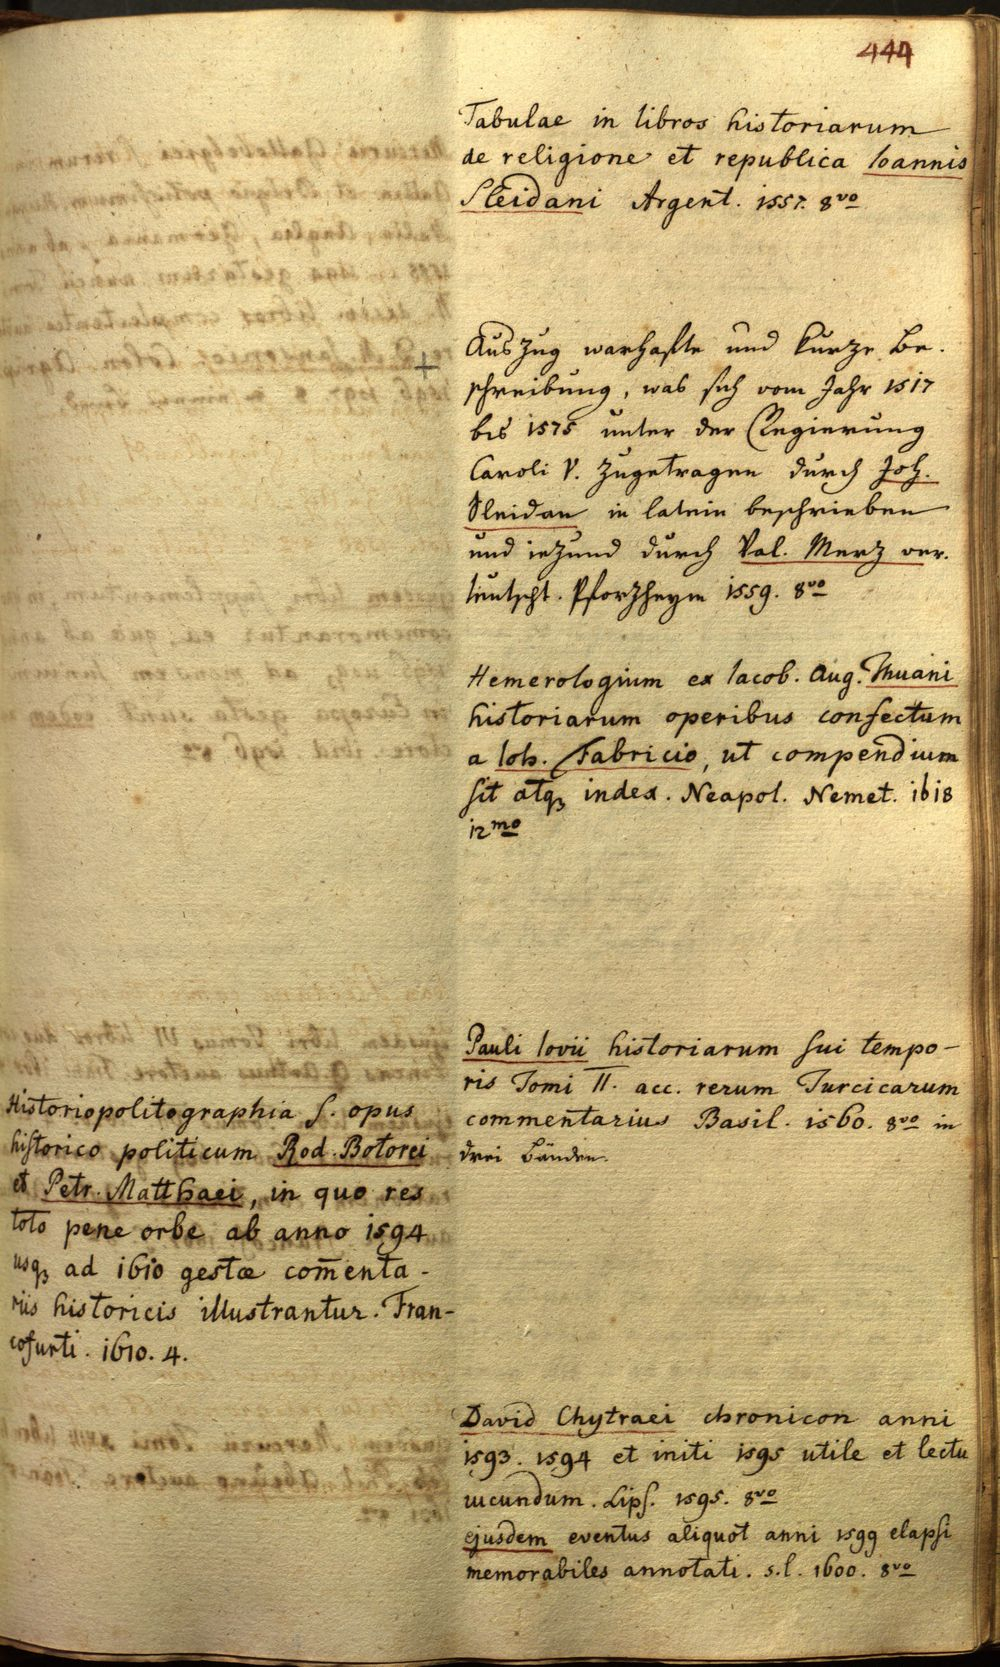 444
Tabulae in libros historiarum
de religione et republica Ioannis
Sleidani Argent. 1557. 8vo
Auszug warhafte und kurze Be.
schreibung, was sich vom Jahr 1517
bis 1575 unter der Regierung
Caroli V. zugetragen durch Joh.
Sleidan in latein beschrieben
und iezund durch Val. Merz ver.
teutscht. Pforzheym 1559. 8vo
Hemerologium ex Iacob. Aug. Thuani
historiarum operibus confectum
a Ioh. Fabricio, ut compendium
sit atq; index. Neapol. Nemet. 1618
12mo
Pauli Iovii historiarum sui tempo-
ris Tomi II. acc. rerum Turcicarum
commentarius Basil. 1560. 8vo in
drei Bänden.
Historiopolitographia s. opus
historico politicum Rod. Botorei
et Petr. Matthaei, in quo res
toto pene orbe ab anno 1594
usq; ad 1610 gestæ com̄enta-
riis historicis illustrantur. Fran-
cofurti. 1610. 4.
David Chytraei chronicon anni
1593. 1594 et initi 1595 utile et lectu
iucundum. Lips. 1595. 8vo
ejusdem eventus aliquot anni 1599 elapsi
memorabiles annotati. s.l. 1600. 8vo